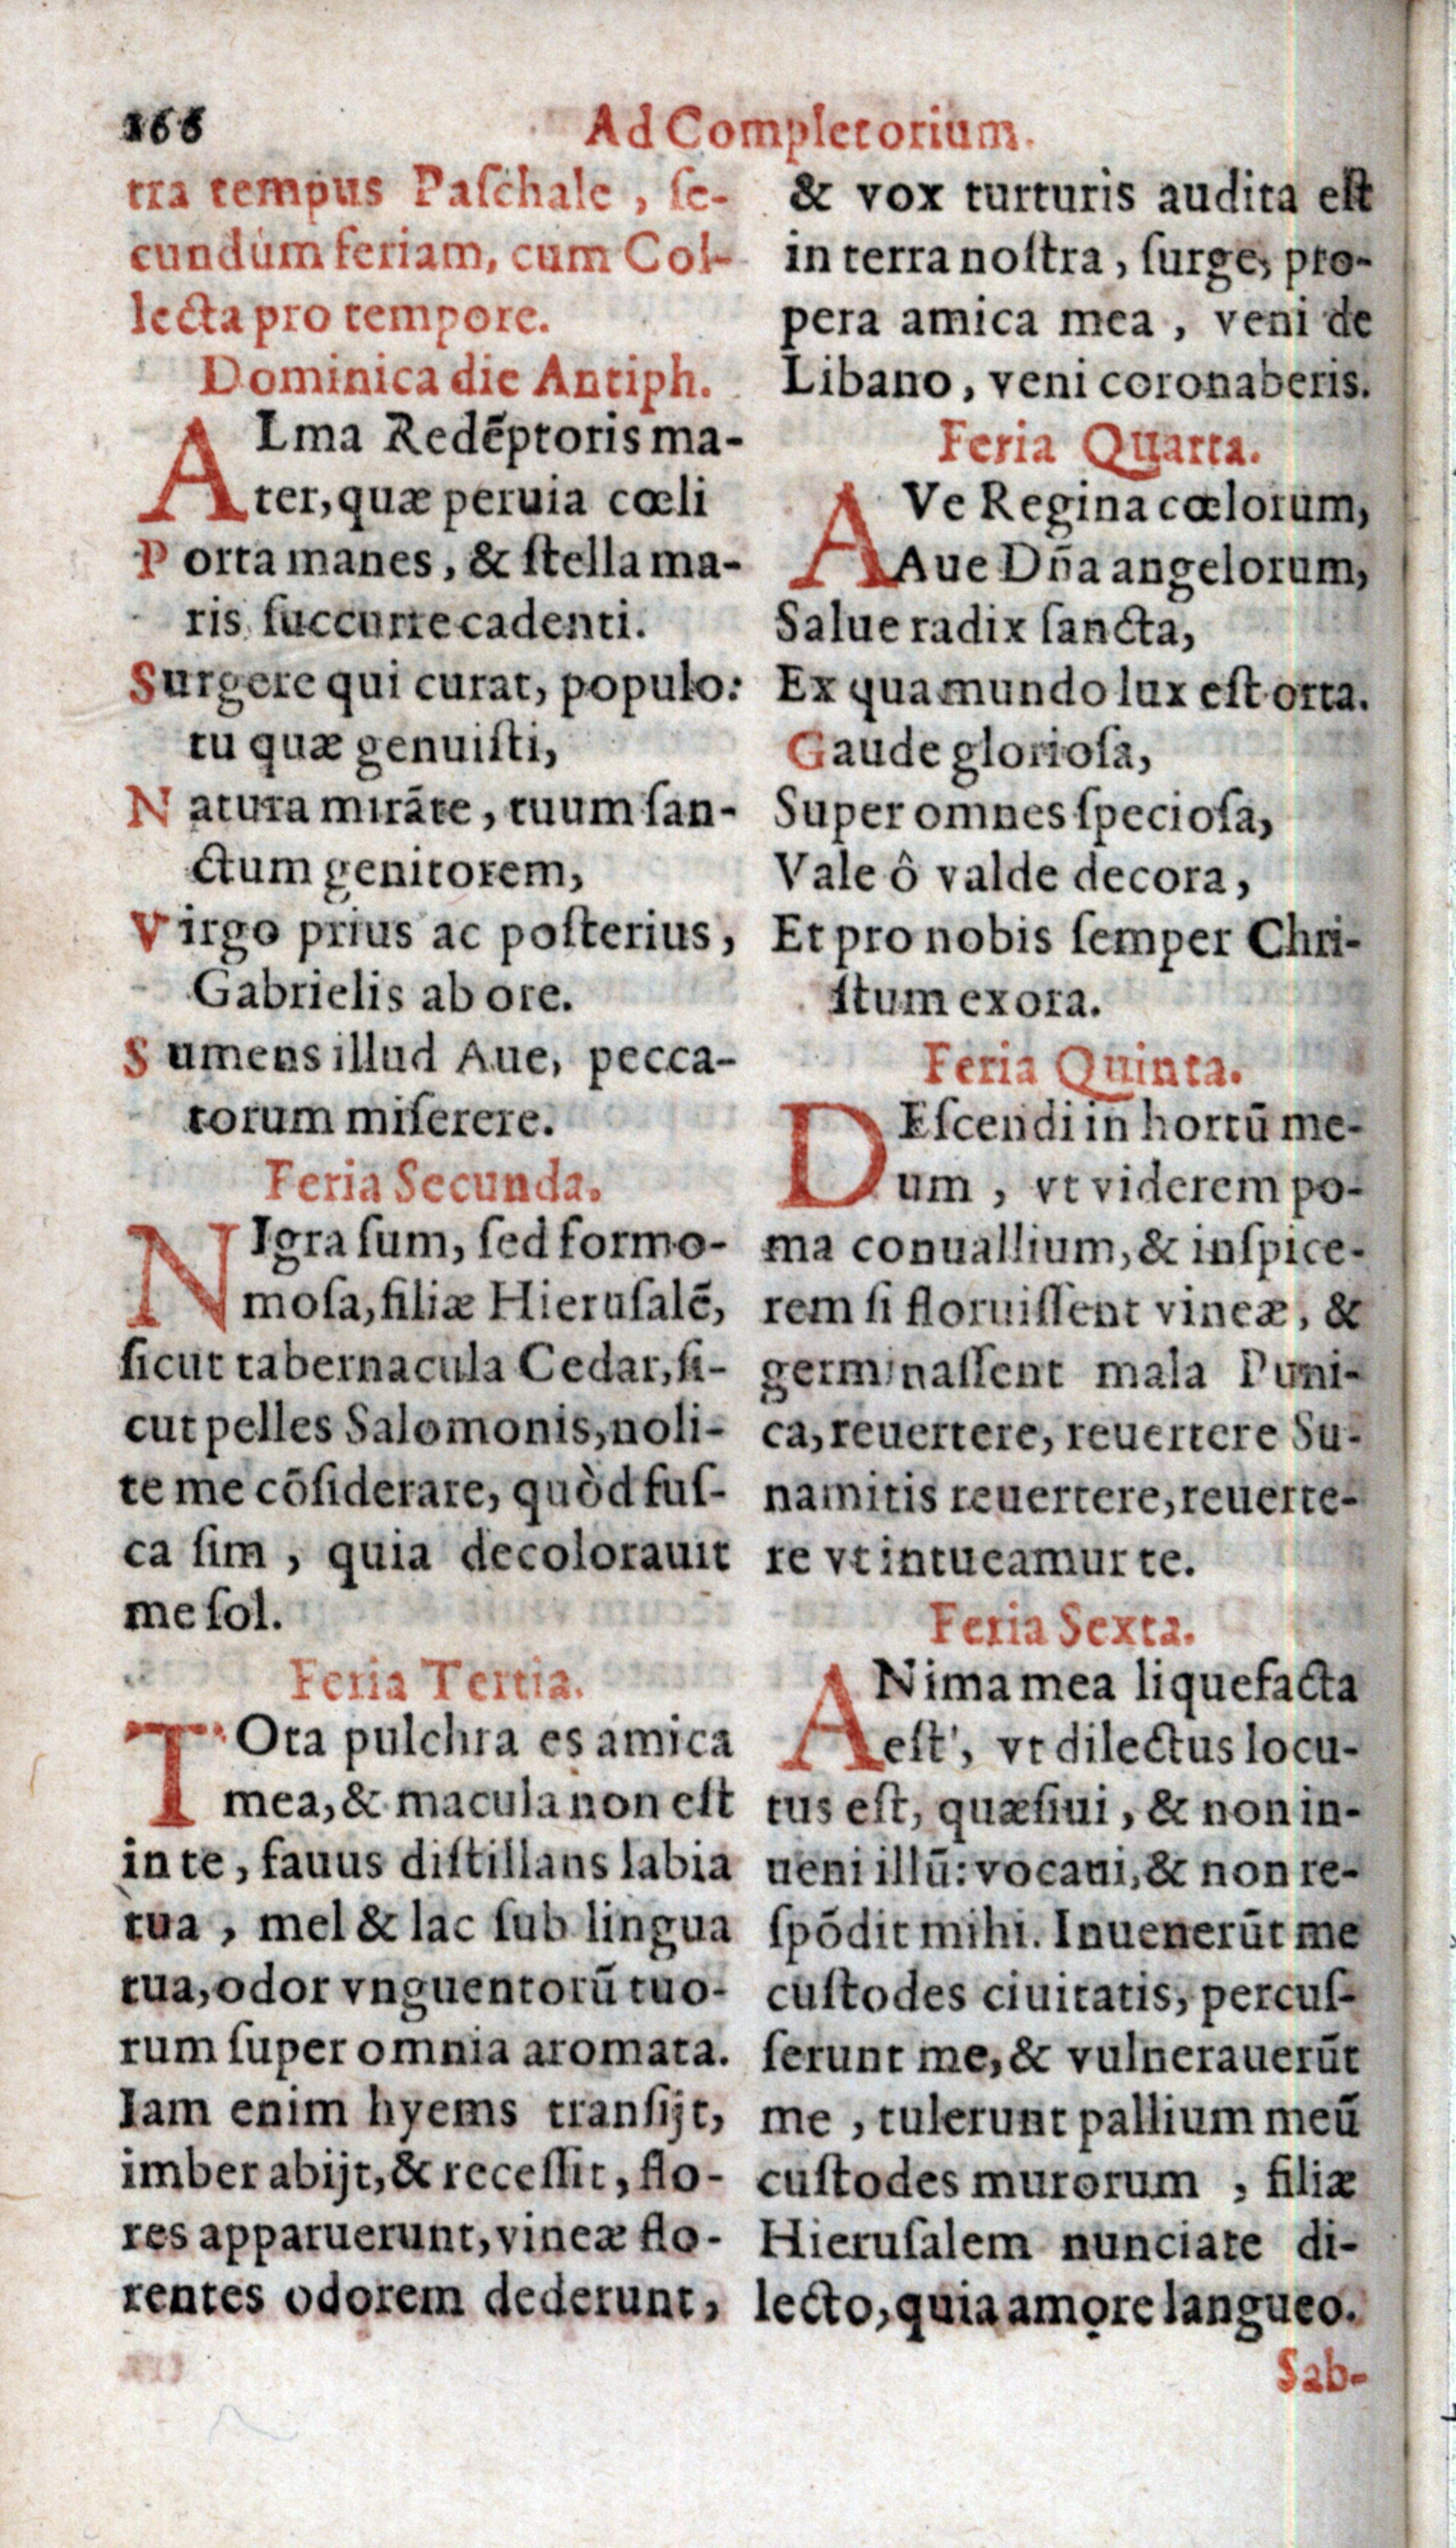 166
Ad Completorium.
tra tempus Paſchale, ſe-
cundùm feriam, cum Col-
lecta pro tempore.
Dominica die Antiph.
ALma Redēptoris ma-
ter, quæ peruia cœli
Porta manes, & ſtella ma-
ris ſuccurre cadenti.
Surgere qui curat, populo:
tu quæ genuiſti,
Natura mirāte, tuum ſan-
ctum genitorem,
Virgo prius ac poſterius,
Gabrielis ab ore.
Sumens illud Aue, pecca-
torum miſerere.
Feria Secunda.
NIgra ſum, ſed formo-
moſa, filiæ Hieruſalē,
ſicut tabernacula Cedar, ſi-
cut pelles Salomonis, noli-
te me cōſiderare, quòd fuſ-
ca ſim, quia decolorauit
me ſol.
Feria Tertia.
TOta pulchra es amica
mea, & macula non eſt
in te, fauus diſtillans labia
tua, mel & lac ſub lingua
tua, odor vnguentorū tuo-
rum ſuper omnia aromata.
Iam enim hyems tranſijt,
imber abijt, & receſſit, flo-
res apparuerunt, vineæ flo-
rentes odorem dederunt,
& vox turturis audita eſt
in terra noſtra, ſurge, pro-
pera amica mea, veni de
Libano, veni coronaberis.
Feria Quarta.
AVe Regina cœlorum,
Aue Dn̄a angelorum,
Salue radix ſancta,
Ex qua mundo lux eſt orta.
Gaude glorioſa,
Super omnes ſpecioſa,
Vale ô valde decora,
Et pro nobis ſemper Chri-
ſtum exora.
Feria Quinta.
DEſcendi in hortū me-
um, vt viderem po-
ma conuallium, & inſpice-
rem ſi floruiſſent vineæ, &
germinaſſent mala Puni-
ca, reuertere, reuertere Su-
namitis reuertere, reuerte-
re vt intueamur te.
Feria Sexta.
ANima mea liquefacta
eſt', vt dilectus locu-
tus eſt, quæſiui, & non in-
ueni illū: vocaui, & non re-
ſpōdit mihi. Inuenerūt me
cuſtodes ciuitatis, percuſ-
ſerunt me, & vulnerauerūt
me, tulerunt pallium meū
cuſtodes murorum, filiæ
Hieruſalem nunciate di-
lecto, quia amore langueo.
Sab-